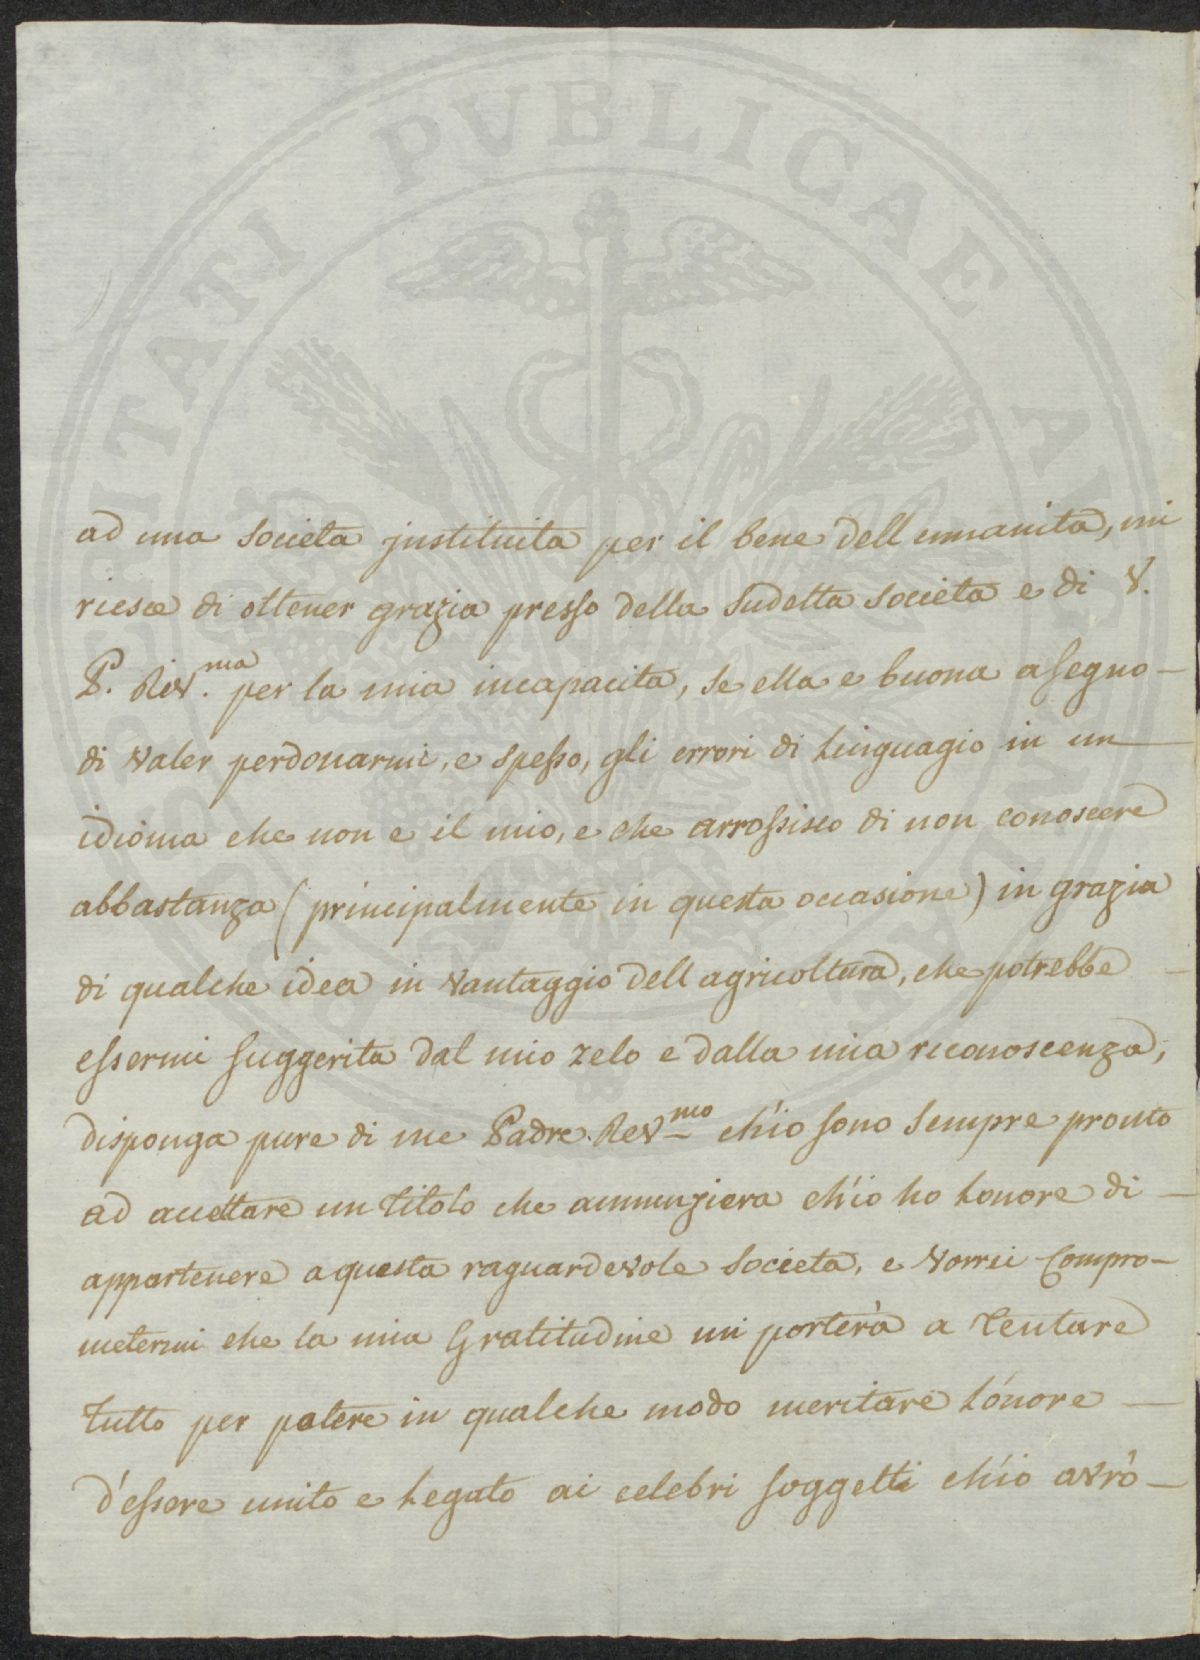 PROSPERITATI PVBLICAE AVGENDAE
ad una Societa justituita per il bene dell umanita, mi
riesce di ottener grazia presso della Sudetta Societa e di V.
P. Rev.ma per la mia incapacita, se ella e buona asegno
di valer perdonarmi, e spesso, gli errori di Linguagio in un
idioma che non e il mio, e che arrossisco di non conoscere
abbastanza (principalmente in questa occasione) in grazia
di qualche idea in vantaggio dell agricoltura, che potrebbe
essermi suggerita dal mio zelo e dalla mia riconoscenza,
disponga pure di me Padre Revmo ch'io sono sempre pronto
ad accettare un titolo che annunziera ch'io ho honore di
appartenere a questa raguardevole Societa, e vorrei Compro-
metermi che la mia Gratitudine mi porterà a tentare
tutto per potere in qualche modo meritare l'onore
d'essere unito e legato ai celebri soggetti ch'io avrò